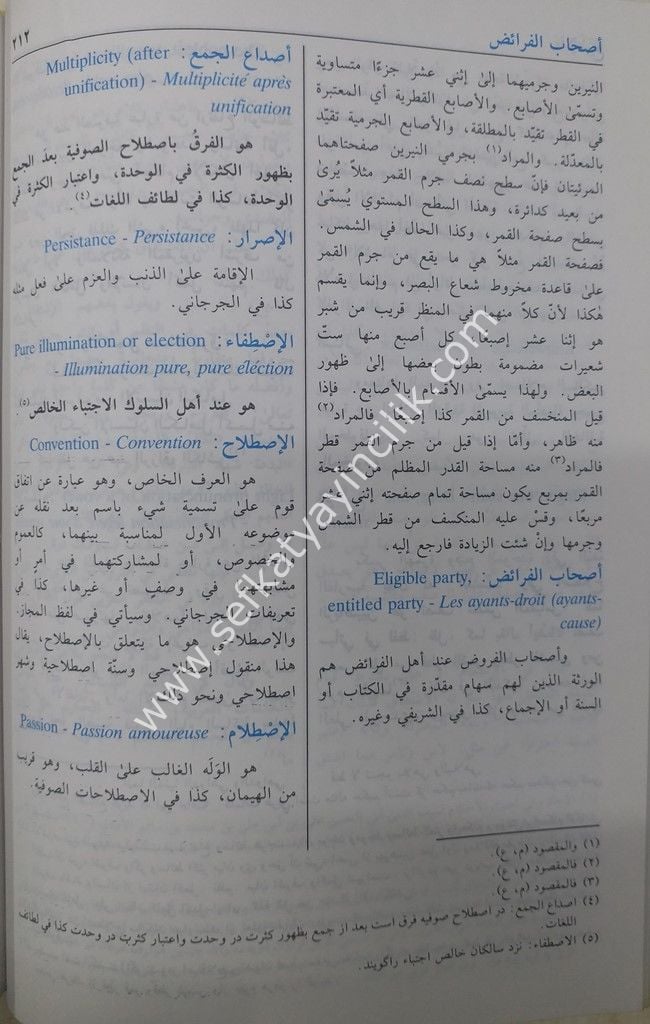 أصحاب الفرائض
٢١٢
النيرين وجرميهما إلىٰ إثني عشر جزءًا متساوية
وتسمّىٰ الأصابع. والأصابع القطرية أي المعتبرة
في القطر تقيّد بالمطلقة، والأصابع الجرمية تقيّد
بالمعدّلة. والمراد(١) بجرمي النيرين صفحتاهما
المرئيتان فإنّ سطح نصف جرم القمر مثلاً يُرىٰ
من بعيد كدائرة، وهذا السطح المستوي يُسمّىٰ
بسطح صفحة القمر، وكذا الحال في الشمس.
فصفحة القمر مثلاً هي ما يقع من جرم القمر
علىٰ قاعدة مخروط شعاع البصر، وإنما يقسم
هٰكذا لأنّ كلاً منهما في المنظر قريب من شبر
هو إثنا عشر إصبعًا، كل أصبع منها ستّ
شعيرات مضمومة بطون بعضها إلىٰ ظهور
البعض. ولهذا يسمّىٰ الأقسام بالأصابع. فإذا
قيل المنخسف من القمر كذا إصبعًا، فالمراد(٢)
منه ظاهر، وأمّا إذا قيل من جرم القمر قطر
فالمراد(٣) منه مساحة القدر المظلم من صفحة
القمر بمربع يكون مساحة تمام صفحته إثني عشر
مربعًا، وقسْ عليه المنكسف من قطر الشمس
وجرمها وإنْ شئت الزيادة فارجع إليه.
أصحاب الفرائض: Eligible party,
entitled party - Les ayants-droit (ayants-
cause)
وأصحاب الفروض عند أهل الفرائض هم
الورثة الذين لهم سهام مقدّرة في الكتاب أو
السنة أو الإجماع، كذا في الشريفي وغيره.
أصداع الجمع: Multiplicity (after
unification) - Multiplicité après
unification
هو الفرقُ باصطلاح الصوفية بعدَ الجمع
بظهور الكثرة في الوحدة، واعتبار الكثرة في
الوحدة، كذا في لطائف اللغات(٤).
الإصرار: Persistance - Persistance
الإقامة علىٰ الذنب والعزم علىٰ فعل مثله
كذا في الجرجاني.
الإصْطِفاء: Pure illumination or election
- Illumination pure, pure éléction
هو عند أهل السلوك الاجتباء الخالص(٥).
الإصْطِلاح: Convention - Convention
هو العرف الخاص، وهو عبارة عن اتفاق
قوم علىٰ تسمية شيء باسم بعد نقله عن
موضوعه الأول لمناسبة بينهما، كالعموم
والخصوص، أو لمشاركتهما في أمر أو
مشابهتهما في وصفٍ أو غيرها، كذا في
تعريفات الجرجاني. وسيأتي في لفظ المجاز.
والإصطلاحي هو ما يتعلق بالإصطلاح، يقال
هذا منقول إصطلاحي وسنّة اصطلاحية وشهر
اصطلاحي ونحو ذلك.
الإصْطِلام: Passion - Passion amoureuse
هو الوَلَه الغالب علىٰ القلب، وهو قريب
من الهيمان، كذا في الاصطلاحات الصوفية.
(١) والمقصود (م، ع).
(٢) فالمقصود (م، ع).
(٣) فالمقصود (م، ع).
(٤) اصداع الجمع: در اصطلاح صوفيه فرق است بعد از جمع بظهور كثرت در وحدت واعتبار كثرت در وحدت كذا في لطائف
اللغات.
(٥) الاصطفاء: نزد سالكان خالص اجتباء راگويند.
www.sefkatyayincilik.com